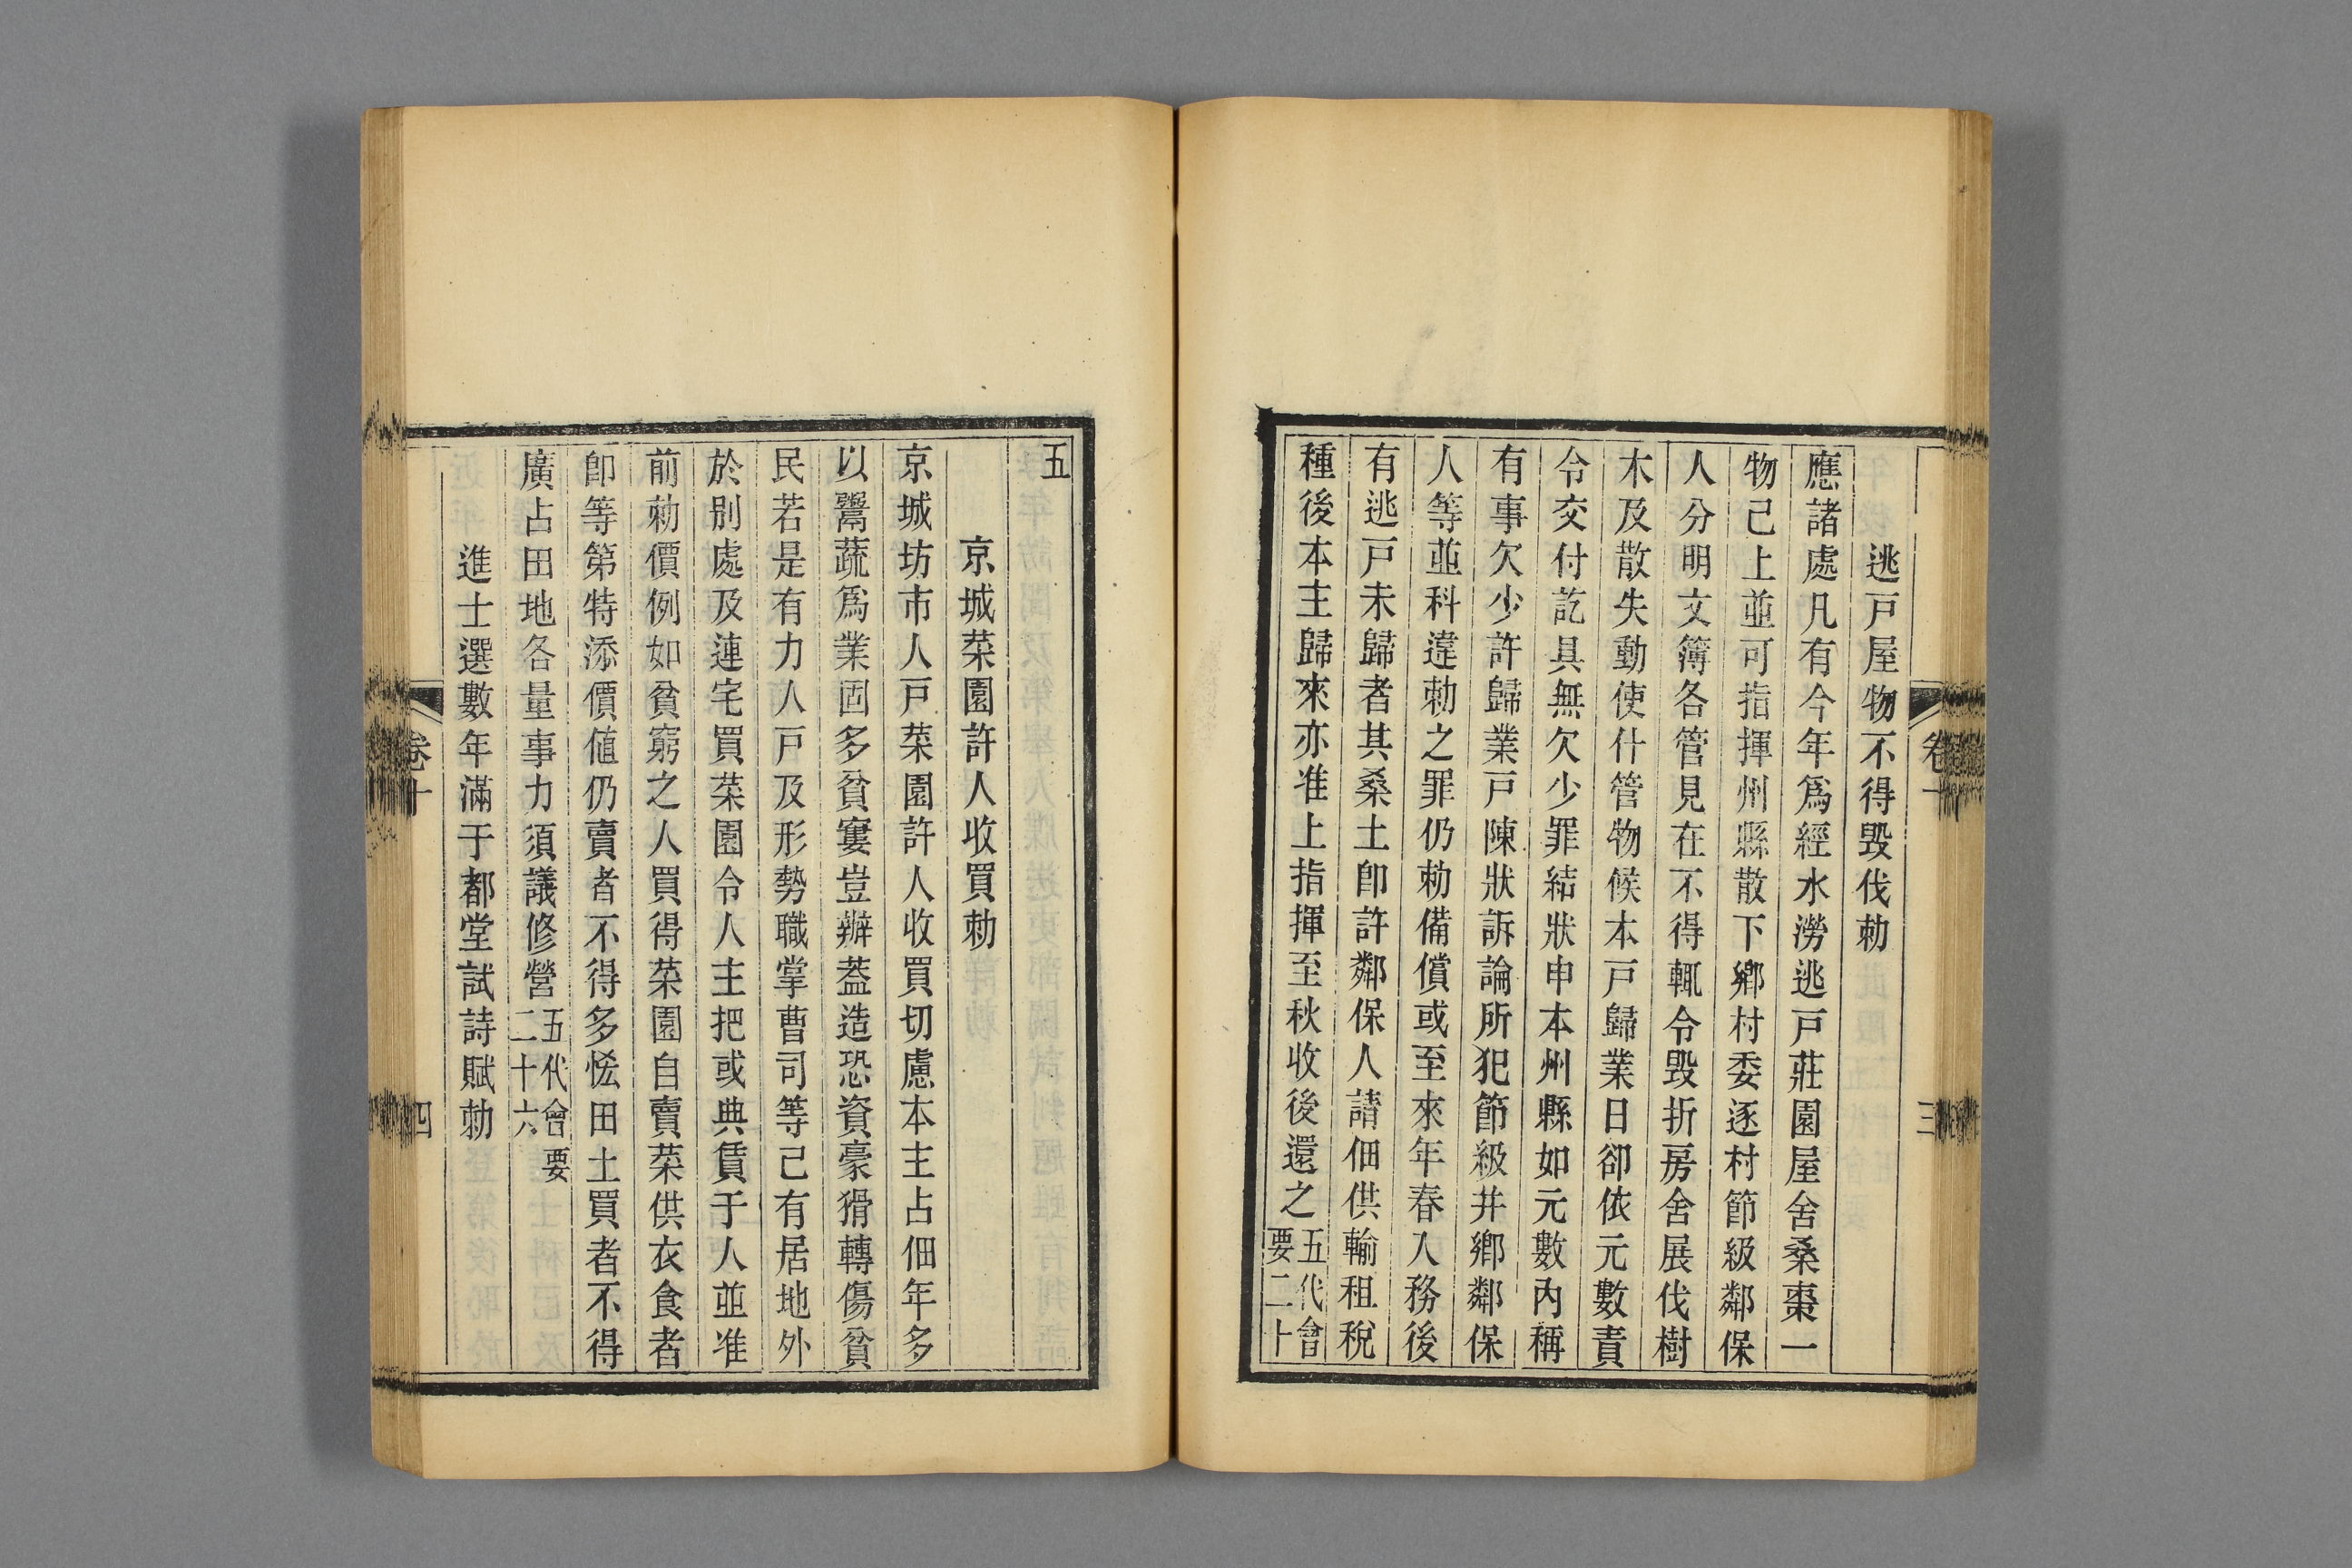 逃戸屋物不得毀伐勅
應諸處凡有今年爲經水澇逃戸莊園屋舍桑棗一
物己上並可指揮州縣散下鄉村委逐村節級鄰保
人分明文簿各管見在不得輒令毀折房舍展伐樹
木及散失動使什管物候本戸歸業日卻依元數責
令交付訖具無欠少罪結狀申本州縣如元數內稱
有事欠少許歸業戸陳狀訴論所犯節級并鄉鄰保
人等並科違勅之罪仍勅備償或至來年春入務後
有逃戸未歸者其桑土卽許鄰保人請佃供輸租稅
種後本主歸來亦准上指揮至秋收後還之五代會
要二十
卷十
三
五
京城菜園許人收買勅
京城坊市人戸菜園許人收買切慮本主占佃年多
以鬻蔬爲業固多貧窶豈辦蓋造恐資豪猾轉傷貧
民若是有力人戸及形勢職掌曹司等己有居地外
於別處及連宅買菜園令人主把或典賃于人並准
前勅價例如貧窮之人買得菜園自賣菜供衣食者
卽等第特添價値仍賣者不得多恡田土買者不得
廣占田地各量事力須議修營五代會要
二十六
進士選數年滿于都堂試詩賦勅
卷十
四